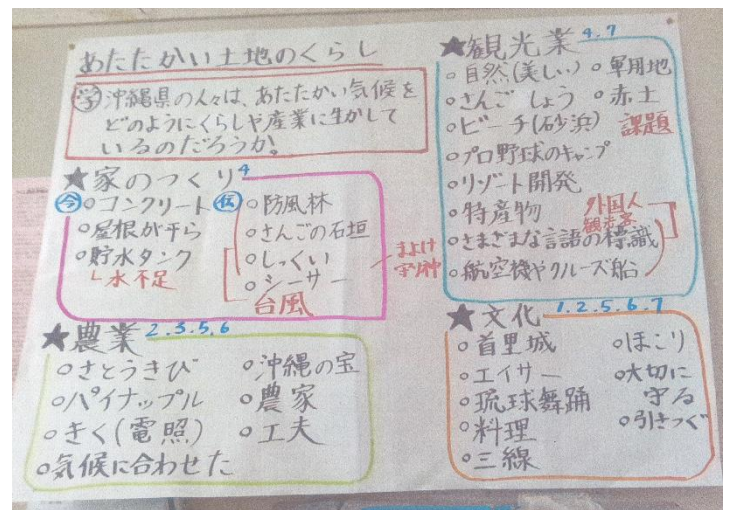 あたたかい土地のくらし
学 沖縄県の人々は、あたたかい気候を
どのようにくらしや産業に生かして
いるのだろうか。
★家のつくり 4
今 ○コンクリート
○屋根が平ら
○貯水タンク
└水不足
伝 ○防風林
○さんごの石垣
○しっくい
○シーサー
台風
まよけ
守り神
★農業 2.3.5.6
○さとうきび
○パイナップル
○きく(電照)
○気候に合わせた
○沖縄の宝
○農家
○工夫
★観光業 4.7
○自然(美しい)
○さんごしょう
○ビーチ(砂浜)
○プロ野球のキャンプ
○リゾート開発
○特産物
○さまざまな言語の標識
○航空機やクルーズ船
○軍用地
○赤土
課題
外国人
観光客
★文化 1.2.5.6.7
○首里城
○エイサー
○琉球舞踊
○料理
○三線
○ほこり
○大切に
守る
○引きつぐ